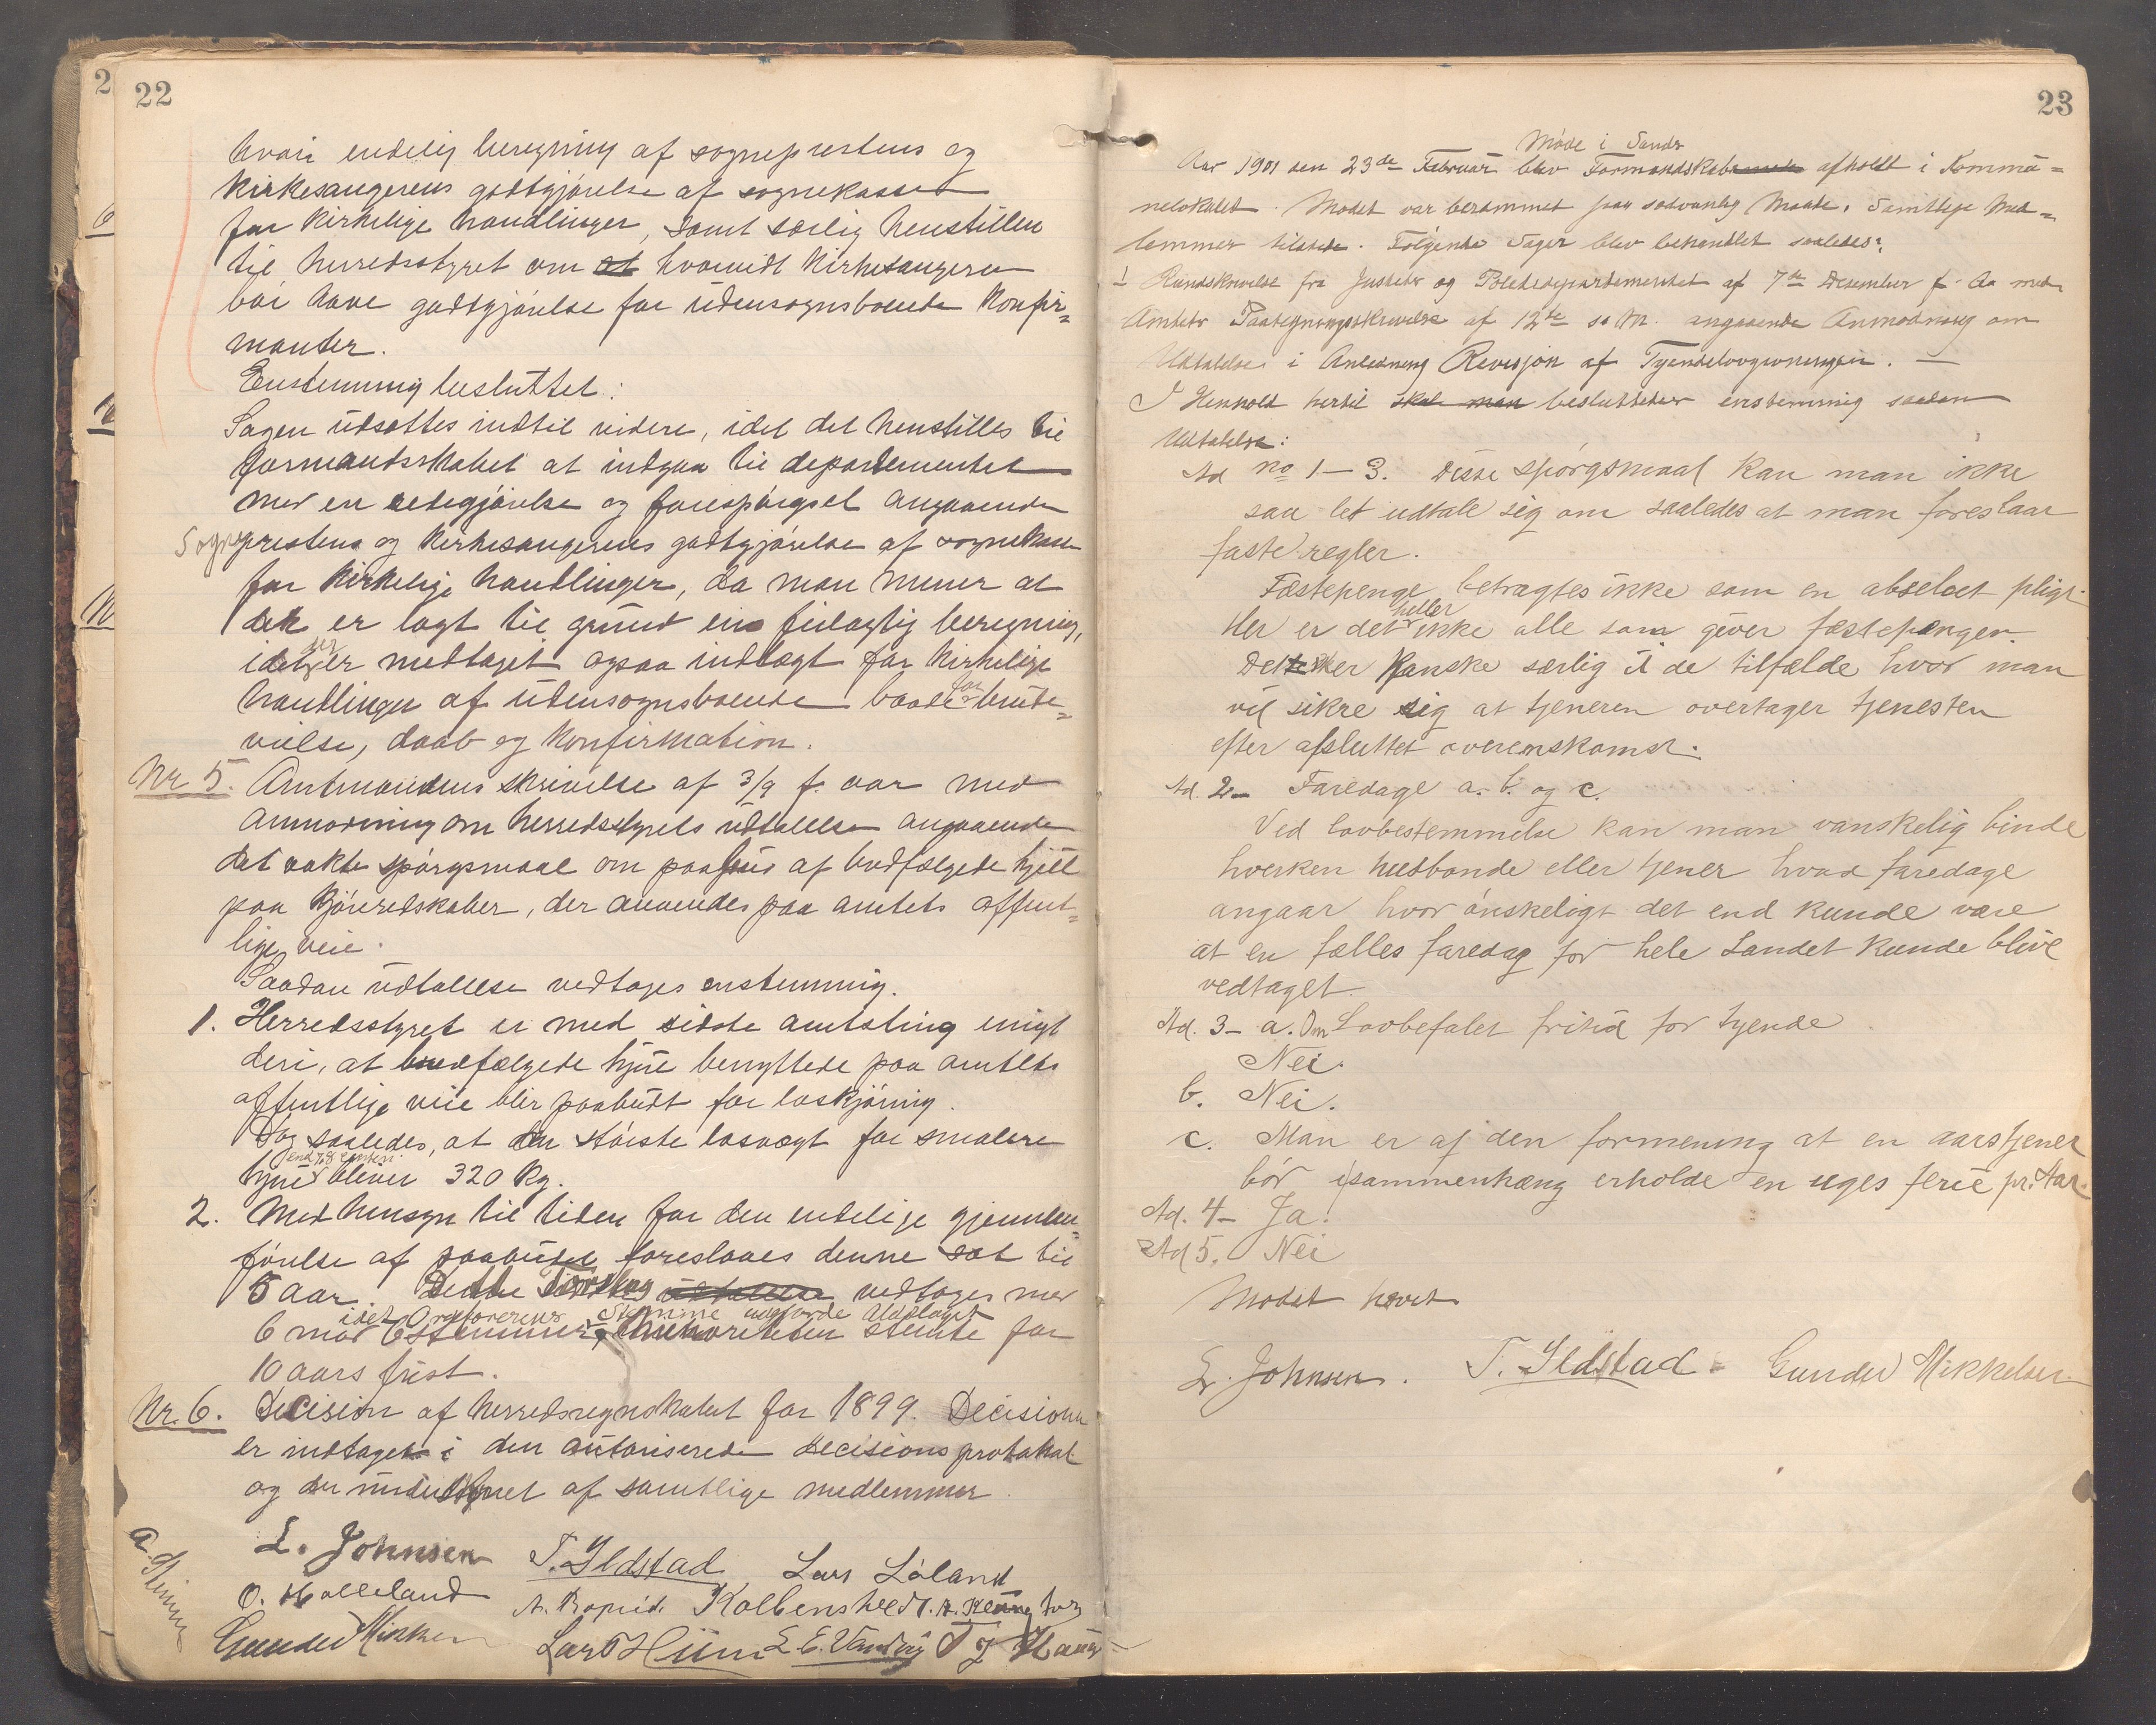 22
hvori endelig beregning af sogneprestens og
kirkesangerens godtgjörelse af sognekassen
for kirkelige handlinger, samt særlig henstillen
til herredsstyret om at hvorvidt kirkesangeren
bör have godtgjörelse for udensognsboende konfir=
manter.
Enstemmig besluttet:
Sagen udsættes indtil videre, idet det henstilles til
formandsskabet at indgaa til departementet
med en redegjörelse og forespörgsel angaaende
Sogneprestens og kirkesangerens godtgjörelse af sognekassen
for kirkelige handlinger, da man mener at
det er lagt til grund en feilagtig beregning,
idet der er medtaget ogsaa indtægt for kirkelige
handlinger af udensognsboende baade for brude=
vielse, daab og konfirmation.
Nr 5. Amtmandens skrivelse af 3/9 f. aar med
anmodning om herredsstyrets udtalelse angaaende
det vakte spörgsmaal om paabud af bredfælgede hjul
paa kjöreredskaber, der anvendes paa amtets offent=
lige veie.
Saadan udtalelse vedtages enstemmig.
1. Herredsstyret er med sidste amtsting enigt
deri, at bredfælgede hjul benyttede paa amtets
offentlige veie blir paabudt for laskjöring.
Dog saaledes, at den störste lasvægt for smalere
hjul end 7,8 centim. bliver 320 kg.
2. Med hensyn til tiden for den endelige gjennem=
förelse af paabudet foreslaaes denne sat til
5 aar. Dette Forslag udtalelse vedtages med
idet Ordförerens Stemme udgjorde Udslaget
6 mod 6 Stemmer, Minoriteten stemte for
10 aars frist.
Nr. 6. Decision af herredsregnskabet for 1899. Decisionen
er indtaget i den autoriserede decisionsprotokol
og der underskrevet af samtlige medlemmer.
L. Johnsen T. Ildstad Lars Löland
O. Holleland Kolbenstvedt
Gunder Mikkelsen Lars Hiim L. E. Vandvig
23
Möde i Sands
Aar 1901 den 23de Februar blev Formandskab afholdt i Kommu=
nelokalet. Mödet var berammet paa sedvanlig Maade. Samtlige Med=
lemmer tilstede. Fölgende Sager blev behandlet saaledes:
1 Rundskrivelse fra Justits og Politidepartementet af 7de Desember f. Aa med
Amtets Paategningsskrivelse af 12te s. M. angaaende Anmodning om
Udtalelse i Anledning Revisjon af Tyendelovgivningen. —
I Henhold hertil skal man besluttedes enstemmig saadan
Udtalelse:
Ad no 1-3. Disse spörgsmaal kan man ikke
saa let udtale sig om saaledes at man foreslaar
faste regler.
Fæstepenge betragtes ikke som en absolut pligt.
Her er det heller ikke alle som giver fæstepenger.
Det sker kanske særlig i de tilfælde hvor man
vil sikre sig at tjeneren overtager tjenesten
efter afsluttet overenskomst.
Ad. 2- Faredage a. b. og c.
Ved lovbestemmelse kan man vanskelig binde
hverken husbonde eller tjener hvad faredage
angaar hvor önskeligt det end kunde være
at en fælles faredag for hele Landet kunde blive
vedtaget.
Ad. 3- a. Om Lovbefalet fritid for tyende.
Nei.
b. Nei.
c. Man er af den formening at en aarstjener
bör i sammenhæng erholde en uges ferie pr. Aar.
Ad. 4- Ja.
Ad 5. Nei
Mödet hævet
L. Johnsen. T. Ildstad Gunder Mikkelsen